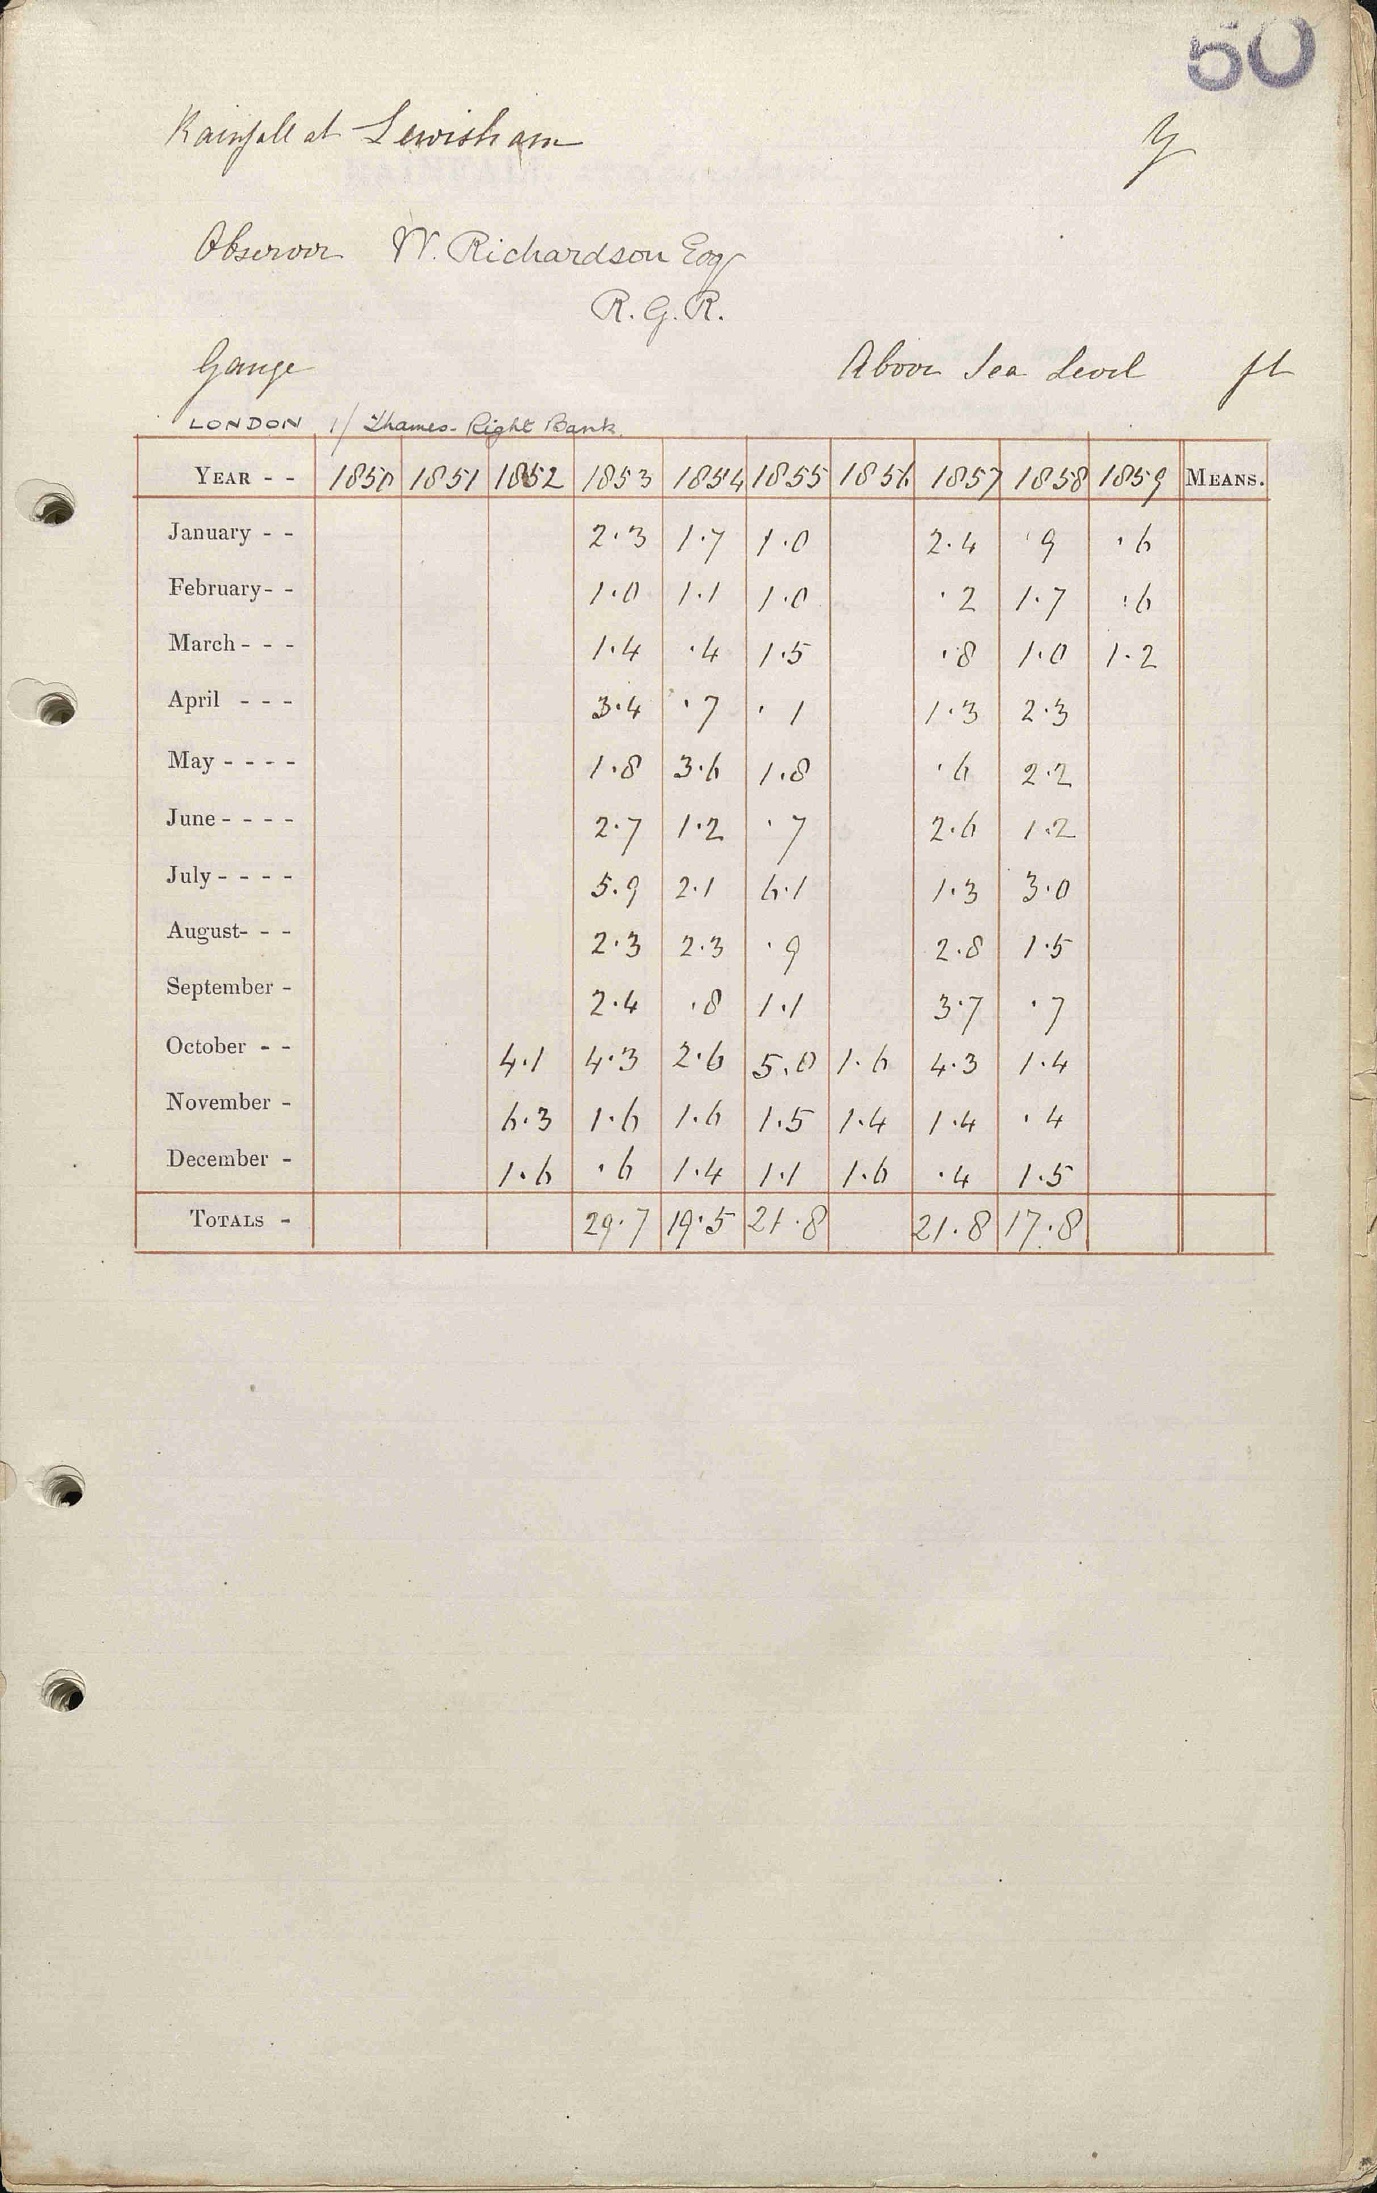 50
Rainfall at Lewisham
Observer W. Richardson Esq
R.G.R.
Gauge Above Sea Level ft
LONDON 1/ Thames-Right Bank.
YEAR - - 1850 1851 1852 1853 1854 1855 1856 1857 1858 1859 MEANS.
January - - 2.3 1.7 1.0 2.4 .9 .6
February - - 1.0 1.1 1.0 .2 1.7 .6
March - - - 1.4 .4 1.5 .8 1.0 1.2
April - - - 3.4 .7 .1 1.3 2.3
May - - - - 1.8 3.6 1.8 .6 2.2
June - - - - 2.7 1.2 .7 2.6 1.2
July - - - - 5.9 2.1 6.1 1.3 3.0
August - - - 2.3 2.3 .9 2.8 1.5
September - 2.4 .8 1.1 3.7 .7
October - - 4.1 4.3 2.6 5.0 1.6 4.3 1.4
November - 6.3 1.6 1.6 1.5 1.4 1.4 .4
December - 1.6 .6 1.4 1.1 1.6 .4 1.5
TOTALS - 29.7 19.5 21.8 21.8 17.8